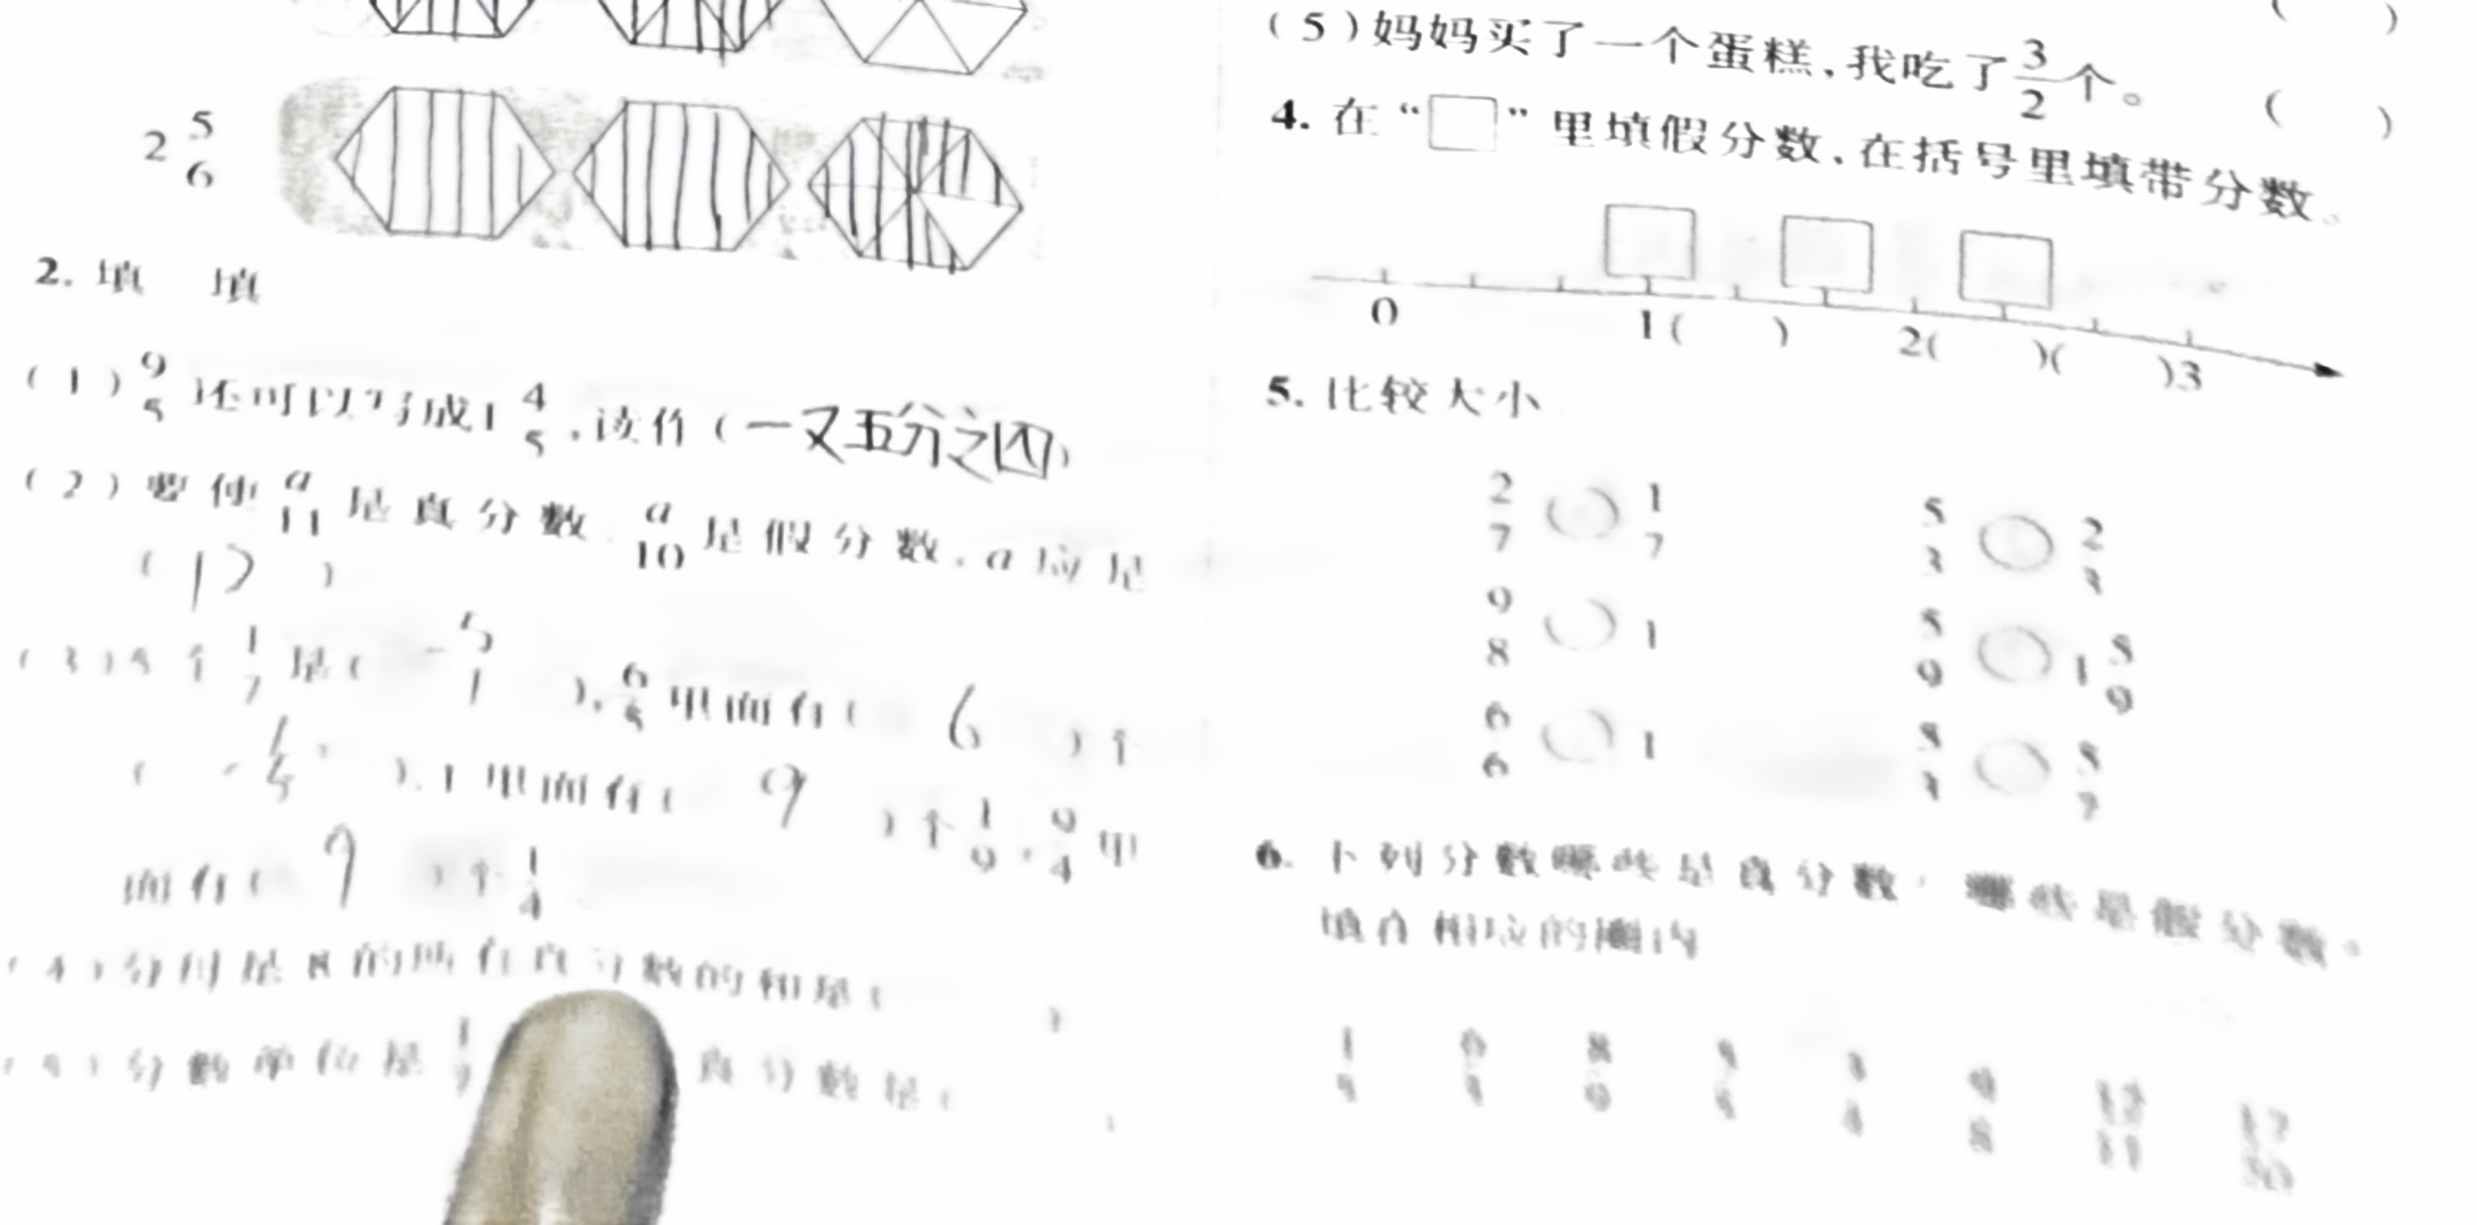 2 5/6
2. 填 填
(1) 9/5 还可以写成1 4/5,读作(一又五分之四)
(2)要使 a/11 是真分数 a/10 是假分数,a应是
( )
(3)5个 1/7 是( ), 6/5 里面有( 6 )个
( ),1里面有( 9 )个 1/9, 9/4 里
面有( 9 )个 1/4
(4)分母是8的所有真分数的和是( )
(5)分数单位是 真分数是( )
( )
(5)妈妈买了一个蛋糕,我吃了 3/2 个。 ( )
4. 在“□”里填假分数、在括号里填带分数。
0 1( ) 2( )( )3
5. 比较大小
2/7 ○ 1/7 5/3 ○ 2/3
9/8 ○ 1 5/9 ○ 1 5/9
6/6 ○ 1 ○
6. 下列分数哪些是真分数 哪些是假分数。
填在相应的圈内